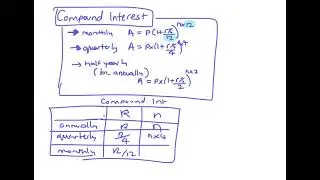 Compound Interest
→ monthly A = P(1+r%/12)^n×12
→ quarterly A = P×(1+r%/4)^n×4
→ half yearly
(bi-annually)
A = P×(1+r%/2)^n×2
Compound Int
R n
annually R n
quarterly R/4 n×4
monthly R/12